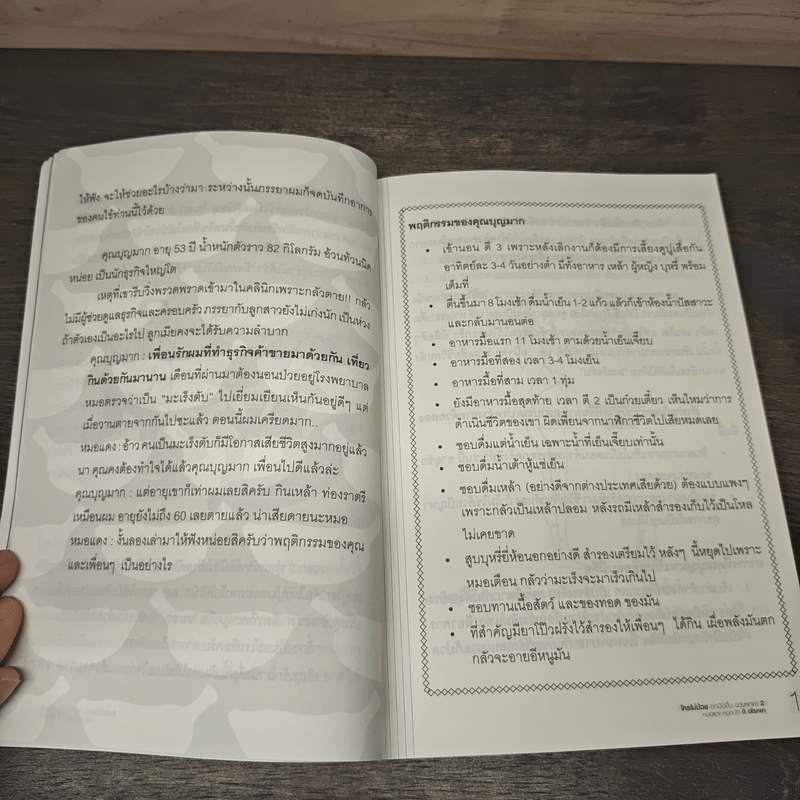 ให้ฟัง จะให้ช่วยอะไรบ้างว่ามา ระหว่างนั้นภรรยาผมก็จดบันทึกอาการ
ของคนไข้ท่านนี้ไว้ด้วย
คุณบุญมาก อายุ 53 ปี น้ำหนักตัวราว 82 กิโลกรัม อ้วนท้วนนิด
หน่อย เป็นนักธุรกิจใหญ่โต
เหตุที่เขารีบวิ่งพรวดพราดเข้ามาในคลินิกเพราะกลัวตาย!! กลัว
ไม่มีผู้ช่วยดูแลธุรกิจและครอบครัว ภรรยากับลูกสาวยังไม่เก่งนัก เป็นห่วง
ถ้าตัวเองเป็นอะไรไป ลูกเมียคงจะได้รับความลำบาก
คุณบุญมาก : เพื่อนรักผมที่ทำธุรกิจค้าขายมาด้วยกัน เที่ยว
กินด้วยกันมานาน เดือนที่ผ่านมาต้องนอนป่วยอยู่โรงพยาบาล
หมอตรวจว่าเป็น “มะเร็งตับ” ไปเยี่ยมเยียนเห็นกันอยู่ดีๆ แต่
เมื่อวานตายจากกันไปซะแล้ว ตอนนี้ผมเครียดมาก..
หมอแดง : อ้าว คนเป็นมะเร็งตับก็มีโอกาสเสียชีวิตสูงมากอยู่แล้ว
นา คุณคงต้องทำใจได้แล้วคุณบุญมาก เพื่อนไปดีแล้วล่ะ
คุณบุญมาก : แต่อายุเขาก็เท่าผมเลยสิครับ กินเหล้า ท่องราตรี
เหมือนผม อายุยังไม่ถึง 60 เลยตายแล้ว น่าเสียดายนะหมอ
หมอแดง : งั้นลองเล่ามาให้ฟังหน่อยสิครับว่าพฤติกรรมของคุณ
และเพื่อนๆ เป็นอย่างไร
พฤติกรรมของคุณบุญมาก
• เข้านอน ตี 3 เพราะหลังเลิกงานก็ต้องมีการเลี้ยงดูปูเสื่อกัน
อาทิตย์ละ 3-4 วันอย่างต่ำ มีทั้งอาหาร เหล้า ผู้หญิง บุหรี่ พร้อม
เต็มที่
• ตื่นขึ้นมา 8 โมงเช้า ดื่มน้ำเย็น 1-2 แก้ว แล้วก็เข้าห้องน้ำปัสสาวะ
และกลับมานอนต่อ
• อาหารมื้อแรก 11 โมงเช้า ตามด้วยน้ำเย็นเจี๊ยบ
• อาหารมื้อที่สอง เวลา 3-4 โมงเย็น
• อาหารมื้อที่สาม เวลา 1 ทุ่ม
• ยังมีอาหารมื้อสุดท้าย เวลา ตี 2 เป็นก๋วยเตี๋ยว เห็นไหมว่าการ
ดำเนินชีวิตของเขา ผิดเพี้ยนจากนาฬิกาชีวิตไปเสียหมดเลย
• ชอบดื่มแต่น้ำเย็น เฉพาะน้ำที่เย็นเจี๊ยบเท่านั้น
• ชอบดื่มน้ำเต้าหู้แช่เย็น
• ชอบดื่มเหล้า (อย่างดีจากต่างประเทศเสียด้วย) ต้องแบบแพงๆ
เพราะกลัวเป็นเหล้าปลอม หลังรถมีเหล้าสำรองเก็บไว้เป็นโหล
ไม่เคยขาด
• สูบบุหรี่ยี่ห้อนอกอย่างดี สำรองเตรียมไว้ หลังๆ นี้หยุดไปเพราะ
หมอเตือน กลัวว่ามะเร็งจะมาเร็วเกินไป
• ชอบทานเนื้อสัตว์ และของทอด ของมัน
• ที่สำคัญมียาโป๊วฝรั่งไว้สำรองให้เพื่อนๆ ได้กิน เผื่อพลังมันตก
กลัวจะอายอีหนูมัน
ใครไม่ป่วย ยกมือขึ้น 2
1